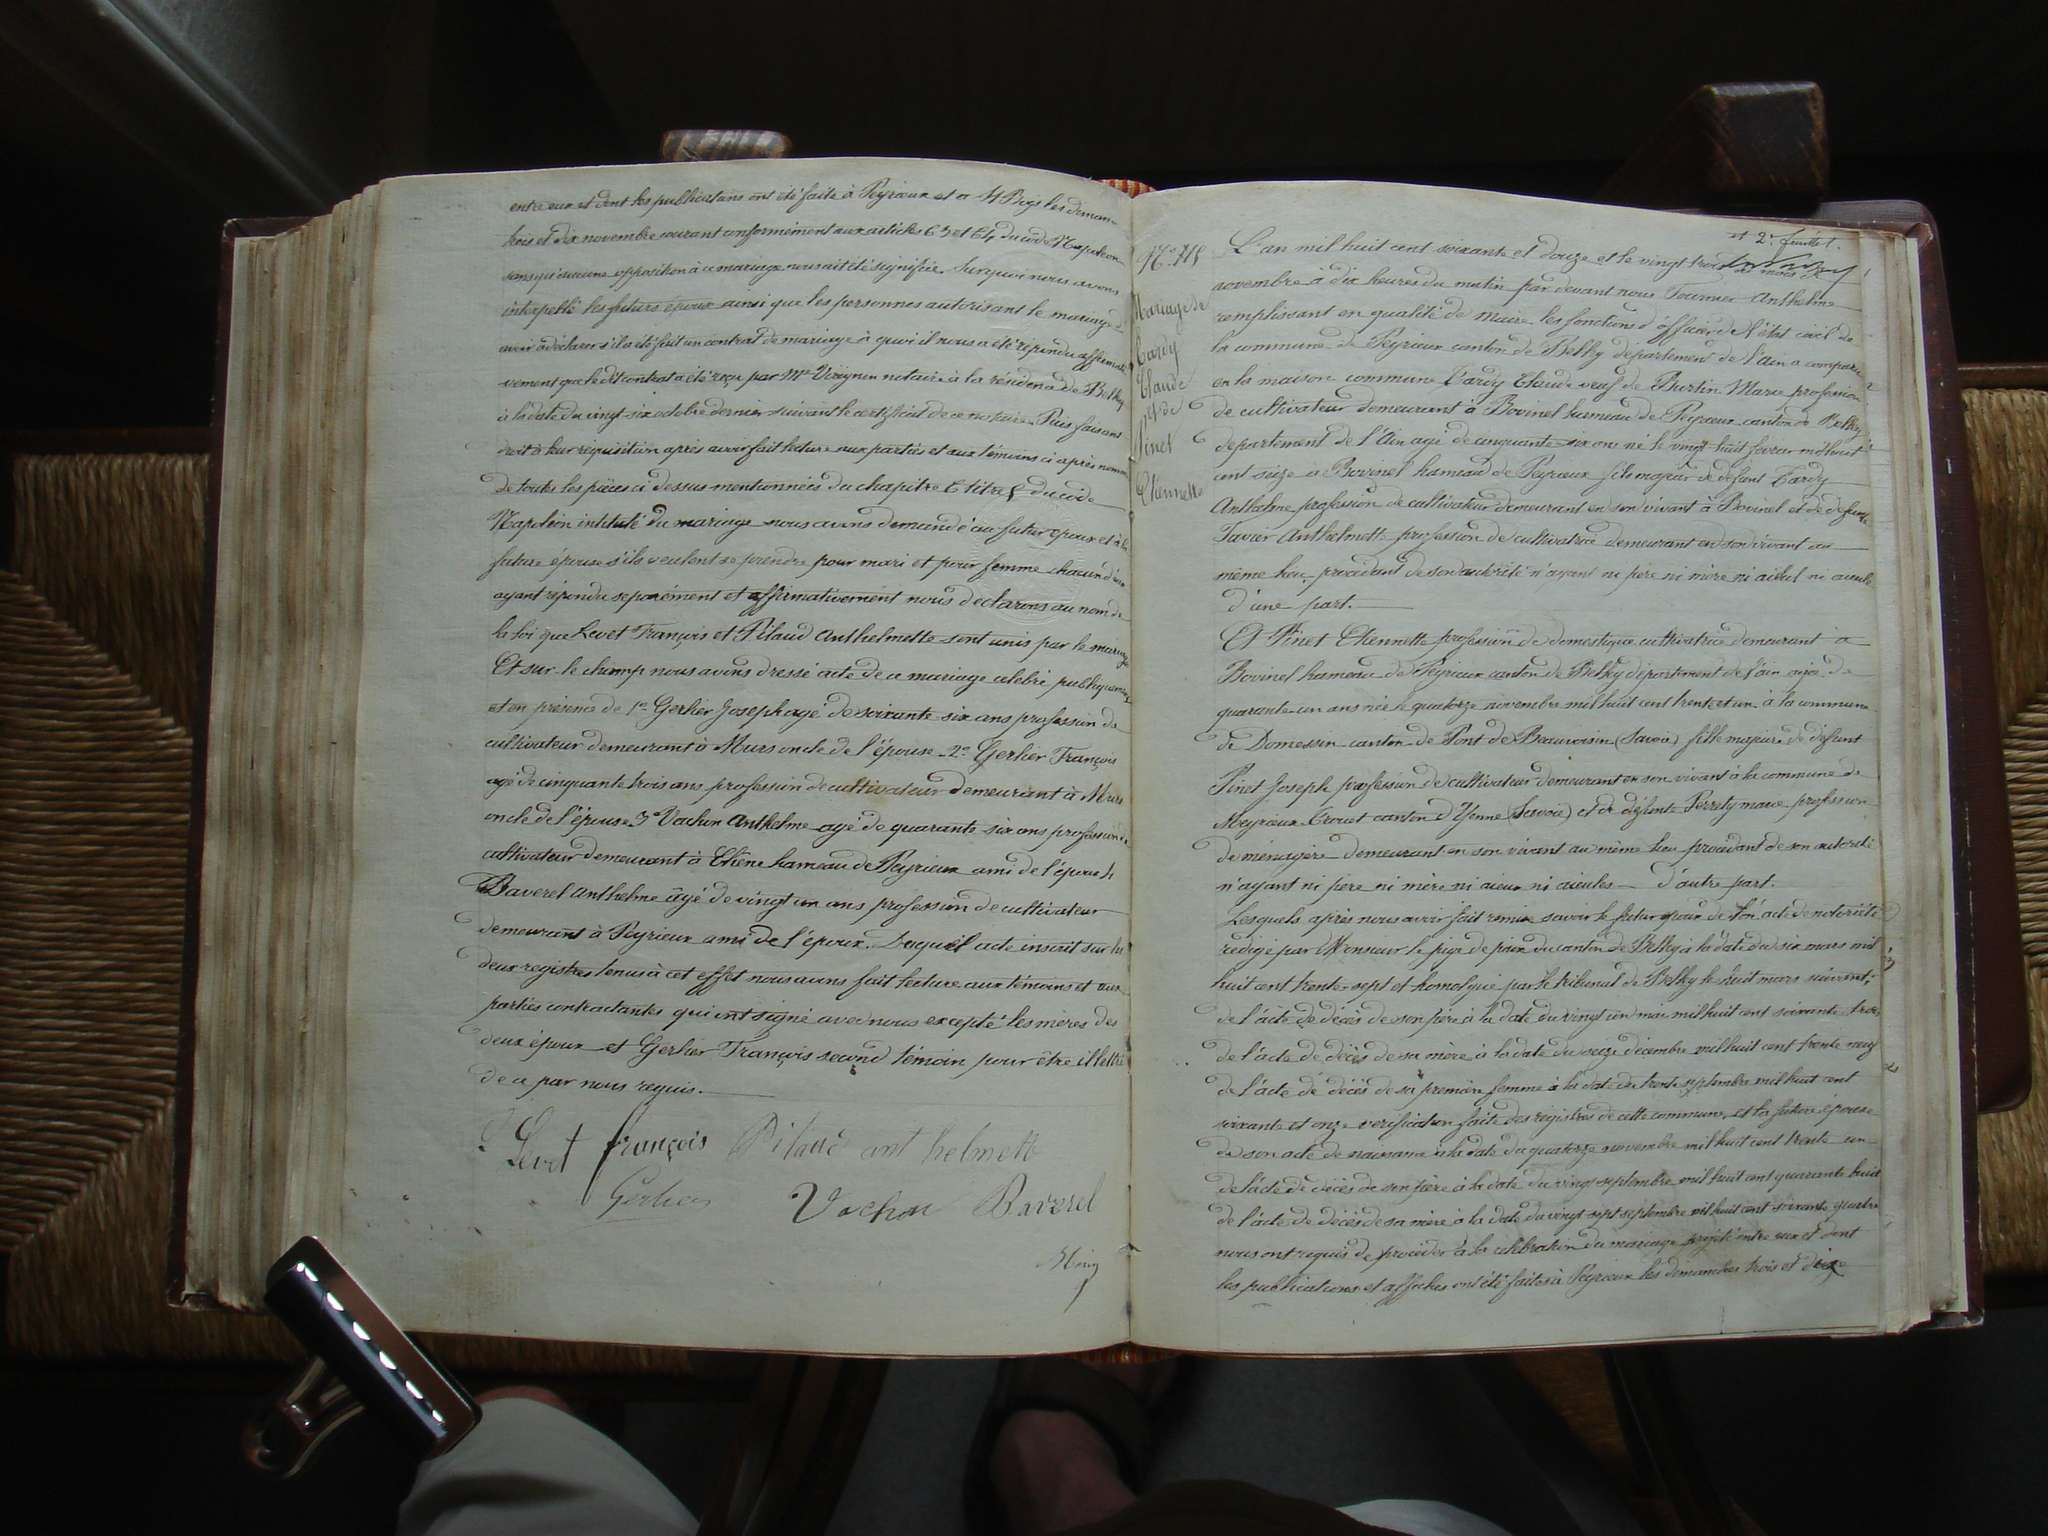 entre eux et dont les publications ont été faite à Peyrieux et a St Bois les diman-
trois et dix novembre courant conformément aux articles 63 et 64 du code Napoléon
sans qu'aucune opposition à ce mariage nous ait été signifiée. Surquoi nous avons
interpellé les futurs époux ainsi que les personnes autorisant le mariage
avoir à déclarer s'il a été fait un contrat de mariage à quoi il nous a été répondu affirmati
vement que le dit contrat a été reçu par Me notaire à la résidence de Belley
à la date du vingt six octobre dernier suivant le certificat de ce notaire. Puis faisant
droit à leur réquisition après avoir fait lecture aux parties et aux témoins ci après nommés
de toutes les pièces ci dessus mentionnées du chapitre 6 titre 5 du code
Napoléon intitulé du mariage nous avons demandé au futur époux et à la
future épouse s'ils veulent se prendre pour mari et pour femme chacun d'eux
ayant répondu séparément et affirmativement nous declarons au nom de
la loi que Levet François et Pilaud Anthelmette sont unis par le mariage
Et sur le champ nous avons dressé acte de ce mariage célébré publiquement
et en présence de 1o Gerlier Joseph agé de soixante six ans profession de
cultivateur demeurant à Murs oncle de l'épouse 2o Gerlier François
agé de cinquante trois ans profession de cultivateur demeurant à Murs
oncle de l'épouse 3o Vachon Anthelme agé de quarante six ans profession
cultivateur demeurant à hameau de Peyrieux ami de l'époux 4
Baverel Anthelme âgé de vingt un ans profession de cultivateur
demeurant à Peyrieux ami de l'époux. Duquel acte inscrit sur les
deux registres tenus à cet effet nous avons fait lecture aux témoins et aux
parties contractantes qui ont signé avec nous excepté les mères des
deux époux et Gerlier François second témoin pour être illettré
de ce par nous requis.
Levet françois Pilaud ant helmette
Gerlier Vachon Baverel
et 2e feuillet.
Mariage de
Tardy
Claude
avec
Pinet
Etiennette
L'an mil huit cent soixante et douze et le vingt trois du mois de
novembre à dix heures du matin par devant nous Fournier Anthelme
remplissant en qualité de Maire les fonctions d'officier de l'état civil de
la commune de Peyrieux canton de Belley département de l'Ain a comparu
en la maison commune Tardy Claude veuf de Burtin Marie profession
de cultivateur demeurant à Bovinel hameau de Peyrieux canton de Belley
département de l'Ain agé de cinquante six ans né le vingt huit février mil huit
cent seize à Bovinel hameau de Peyrieux fils majeur de défunt Tardy
Anthelme profession de cultivateur demeurant en son vivant à Bovinel et de défunte
Tavier Anthelmette profession de cultivatrice demeurant en son vivant au
même lieu, procédant de son autorité n'ayant ni père ni mère ni aïeul ni aieule
d'une part.
Et Pinet Etiennette profession de domestique cultivatrice demeurant à
Bovinel hameau de Peyrieux canton de Belley département de l'ain agée de
quarante un ans née le quatorze novembre mil huit cent trente et un à la commune
de Domessin canton de Pont de Beauvoisin (Savoie) fille majeure de défunt
Pinet Joseph profession de cultivateur demeurant en son vivant à la commune de
Meyrieux Trouet canton d'Yenne (Savoie) et de défunte Perrety marie profession
de ménagère demeurant en son vivant au même lieu procédant de son autorité
n'ayant ni père ni mère ni aïeux ni aieules d'autre part.
Lesquels après nous avoir fait remise savoir le futur époux de l'acte de notoriété
rédigé par Monsieur le juge de paix du canton de Belley à la date du six mars mil
huit cent trente sept et homologué par le tribunal de Belley le huit mars suivant;
de l'acte de décès de son père à la date du vingt un mai mil huit cent soixante trois
de l'acte de décès de sa mère à la date du seize décembre mil huit cent trente neuf
de l'acte de décès de sa première femme à la date du trente septembre mil huit cent
soixante et onze vérification faite des régistres de cette commune, et la future épouse
de son acte de naissance à la date du quatorze novembre mil huit cent trente un
de l'acte de décès de son père à la date du vingt septembre mil huit cent quarante huit
de l'acte de décès de sa mère à la date du vingt sept septembre mil huit cent soixante quatre
nous ont requis de procéder à la célébration du mariage projeté entre eux et dont
les publications et affiches ont été faites à Peyrieux les dimanches trois et dix